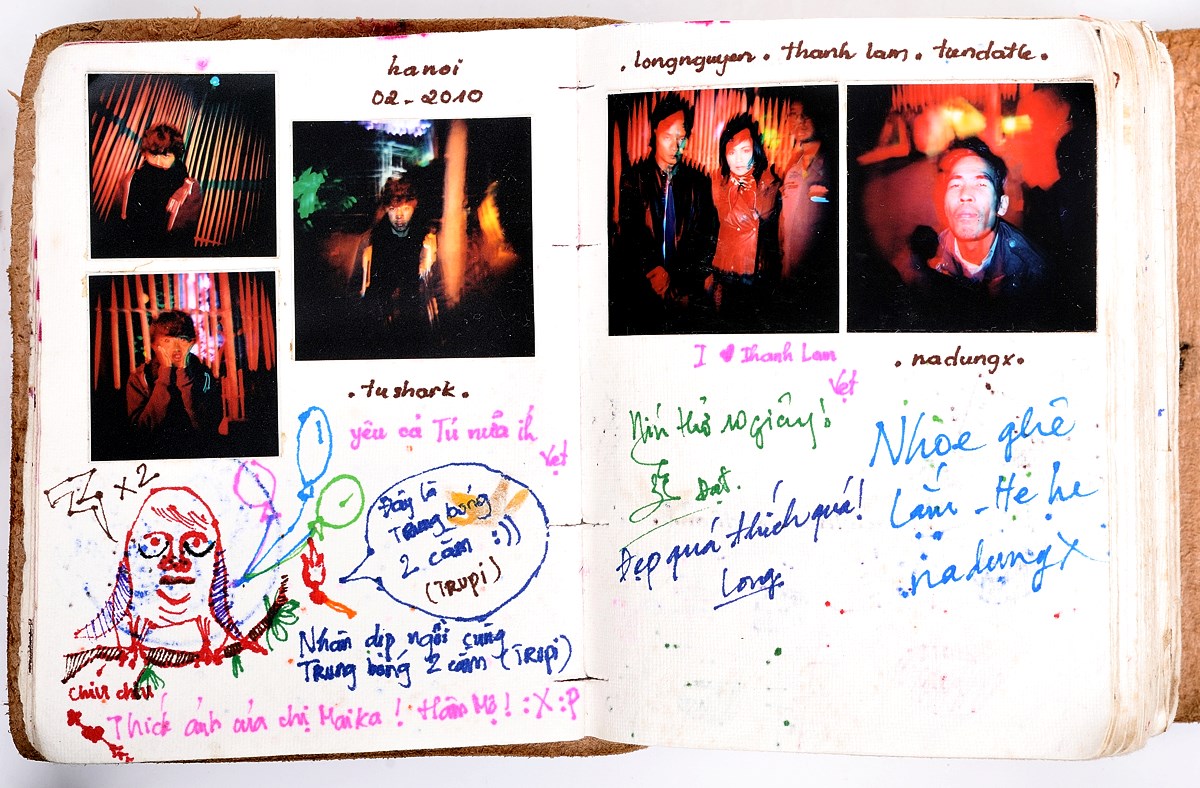 hanoi
02 - 2010
. tushark .
yêu cả Tú nữa ih
Vẹt
Z x2
Đây là
Trung bóng
2 cằm :))
(TRUPI)
Nhân dịp ngồi cùng
Trung bóng 2 cằm - (TRUPI)
chíu chíu
Thích ảnh của chị Maika ! Hâm Mộ ! :X :P
. longnguyen . thanh lam . tundatle .
I ♥ Thanh Lam
Vẹt
. nadungx .
Nín thở 10 giây !
Đạt.
Đẹp quá thích quá !
Long
Nhòe ghê
Lắm - Hè he
nadungx